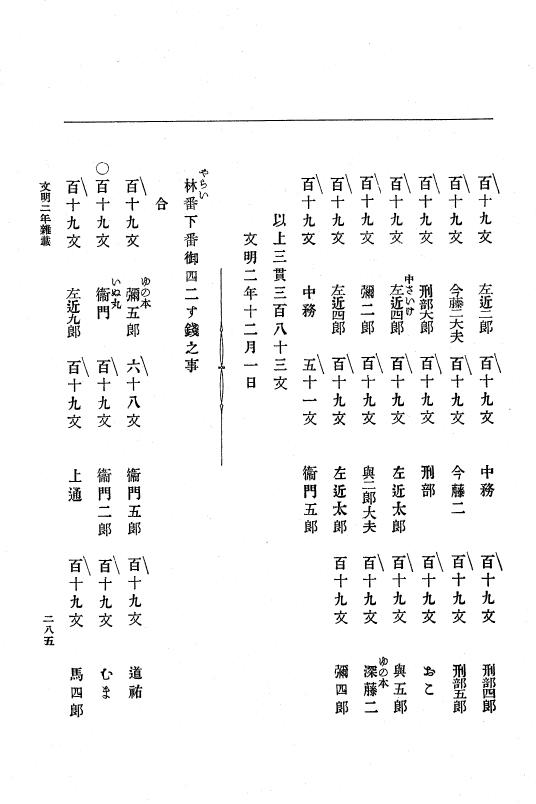 百十九文　左近二郎　百十九文　中務　百十九文　刑部四郎
百十九文　今藤二大夫　百十九文　今藤二　百十九文　刑部五郎
百十九文　刑部太郎　百十九文　刑部　百十九文　おこ
中さいけ
百十九文　左近四郎　百十九文　左近太郎　百十九文　與五郎
ゆの本
百十九文　彌二郎　百十九文　與二郎大夫　百十九文　深藤二
百十九文　左近四郎　百十九文　左近太郎　百十九文　彌四郎
百十九文　中務　五十一文　衞門五郎
以上三貫三百八十三文
文明二年十二月一日
やらい
林番下番御四二す錢之事
合
ゆの本
百十九文　彌五郎　六十八文　衞門五郎　百十九文　道祐
いぬ丸
○百十九文　衞門　百十九文　衞門二郎　百十九文　むま
百十九文　左近九郎　百十九文　上通　百十九文　馬四郎
文明二年雜載
二八五